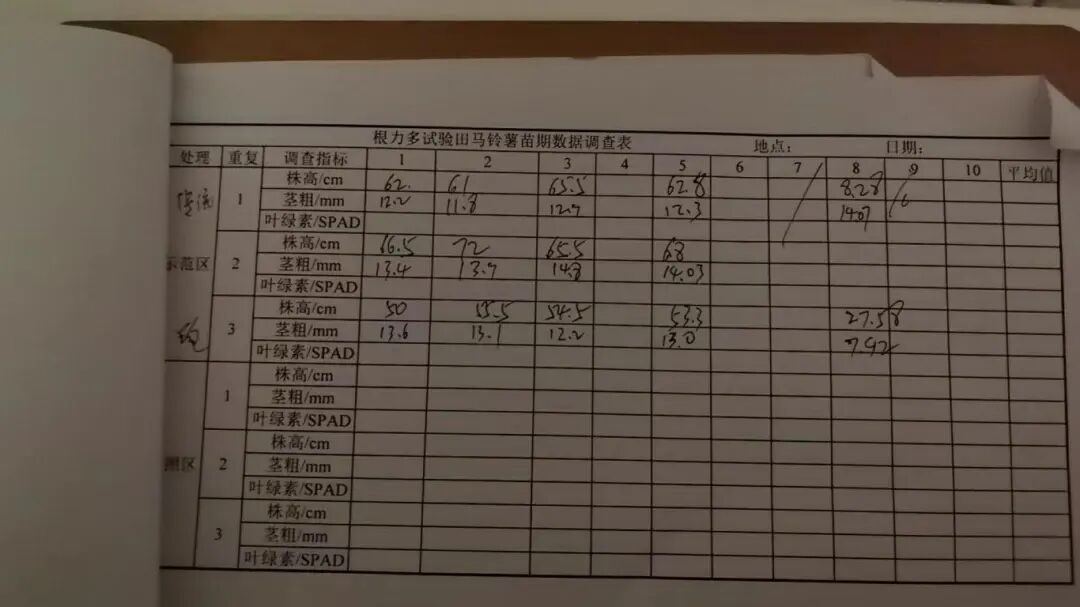 根力多试验田马铃薯苗期数据调查表 地点: 日期:
处理 重复 调查指标 1 2 3 4 5 6 7 8 9 10 平均值
1 株高/cm 62. 61 65.5 62.8 8.28
茎粗/mm 12.2 11.8 12.9 12.3 14.07
叶绿素/SPAD
示范区 2 株高/cm 66.5 72 65.5 68
茎粗/mm 13.4 13.9 14.8 14.03
叶绿素/SPAD
3 株高/cm 50 55.5 54.5 53.3 27.58
茎粗/mm 13.6 13.1 12.2 13.0 7.92
叶绿素/SPAD
1 株高/cm
茎粗/mm
叶绿素/SPAD
照区 2 株高/cm
茎粗/mm
叶绿素/SPAD
3 株高/cm
茎粗/mm
叶绿素/SPAD